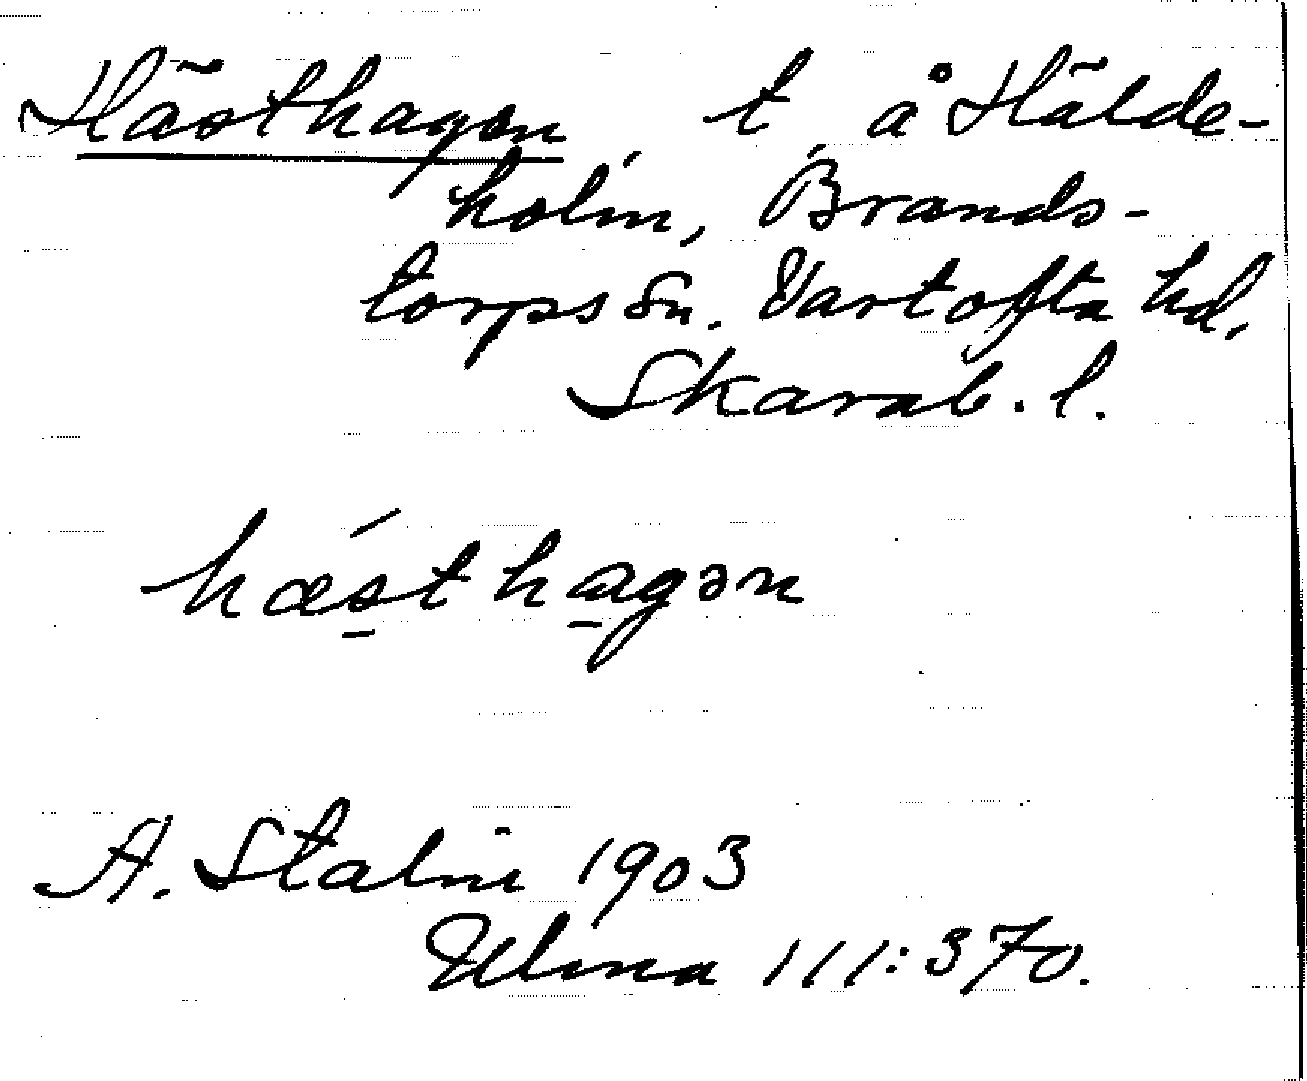 Hästhagen t å Hälde-
holm, Brands-
torps sn. Vartofta hd,
Skarab. l.
hæ´sthagən
A. Stalin 1903
Ulma 111:370.